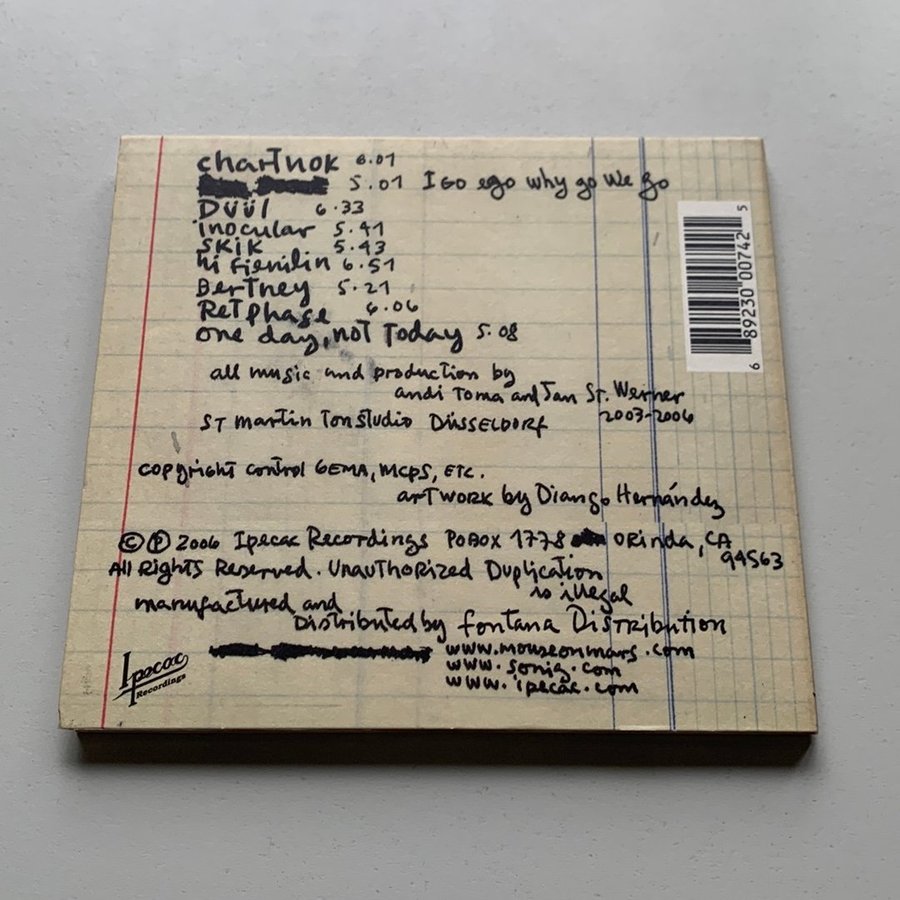 chartnok 6.01
5.01 I Go ego why go We go
Düül 6.33
inocular 5.41
SKIK 5.43
hi fienilin 6.51
Bertney 5.21
Retphase 6.06
one day, not Today 5.08
all music and production by
andi Toma and Jan St. Werner
ST martin Tonstudio DÜSSELDORF 2003-2006
copyright control GEMA, MCPS, ETC.
artwork by Diango Hernández
© ℗ 2006 Ipecac Recordings POBOX 1778 ORinda, CA
94563
All Rights Reserved. Unauthorized Duplication
is illegal
manufactured and
Distributed by fontana Distribution
www.mouseonmars.com
www.sonig.com
www.ipecac.com
Ipecac
Recordings
6 89230 00742 5